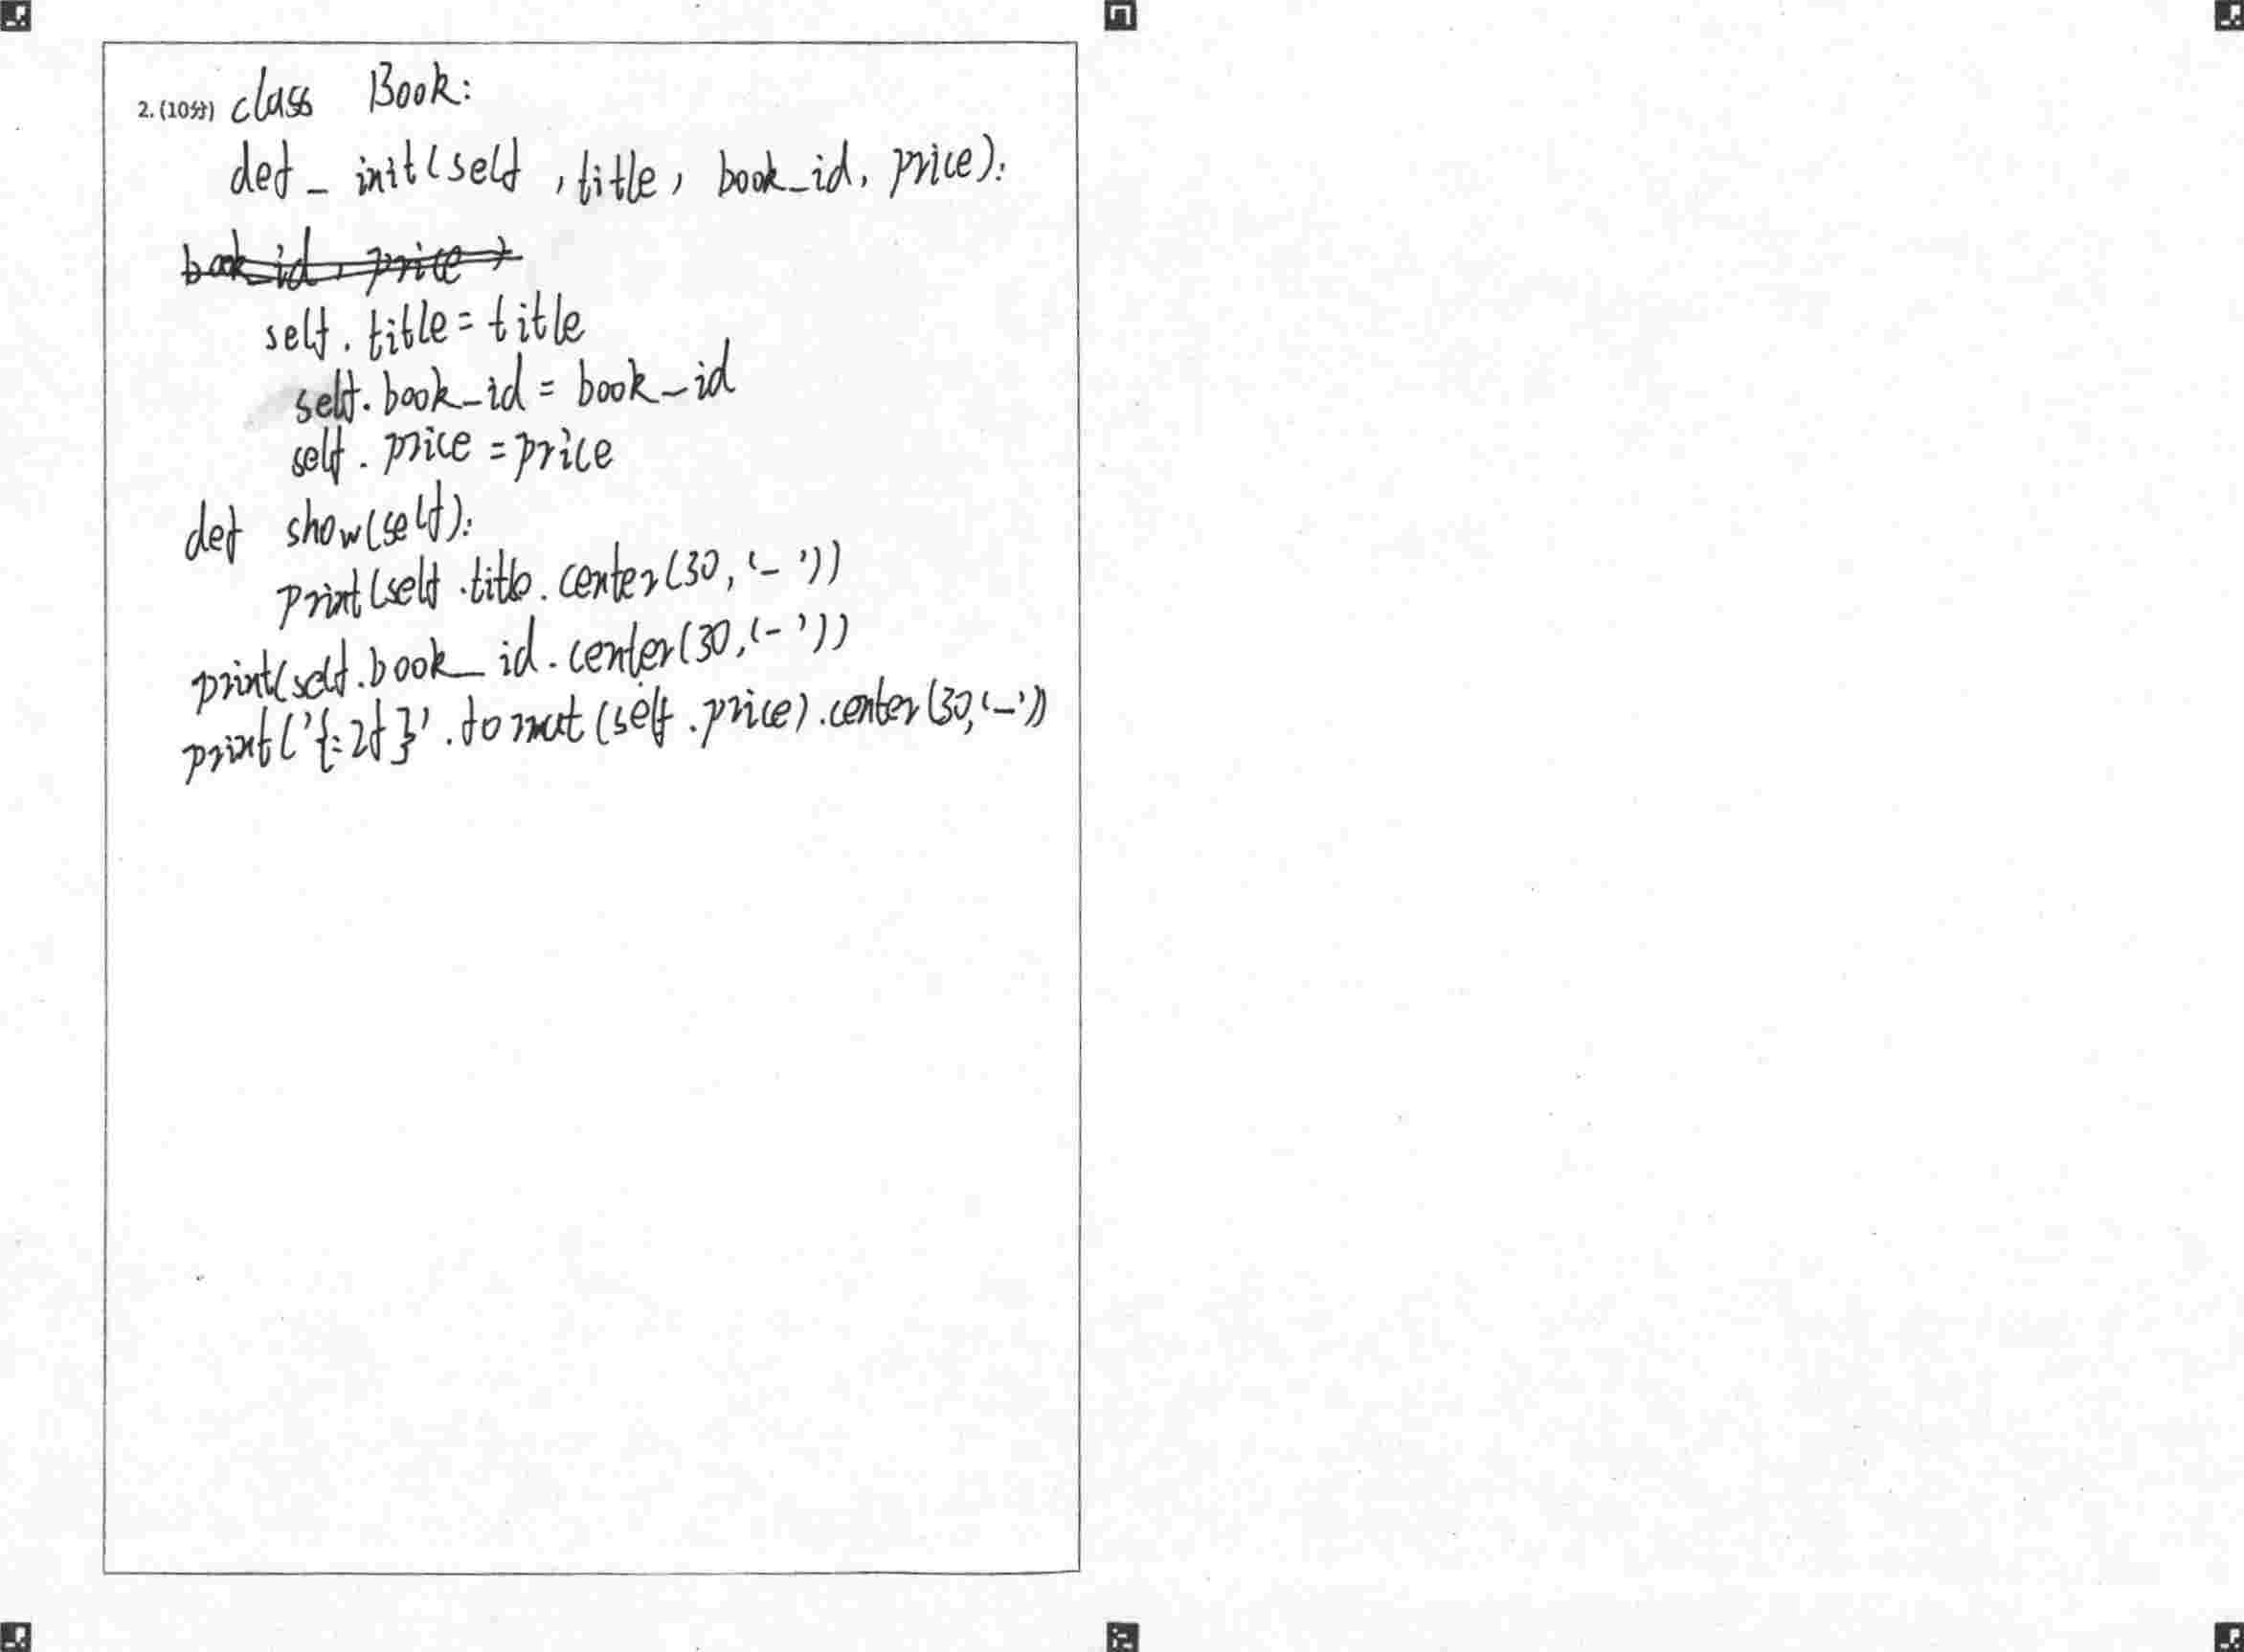 2. (10分) class Book:
def _ init(self, title, book_id, price):
book_id, price)
self.title = title
self.book_id = book_id
self.price = price
def show(self):
print(self.title.center(30, '-'))
print(self.book_id.center(30, '-'))
print('{:2f}'.format(self.price).center(30, '-'))